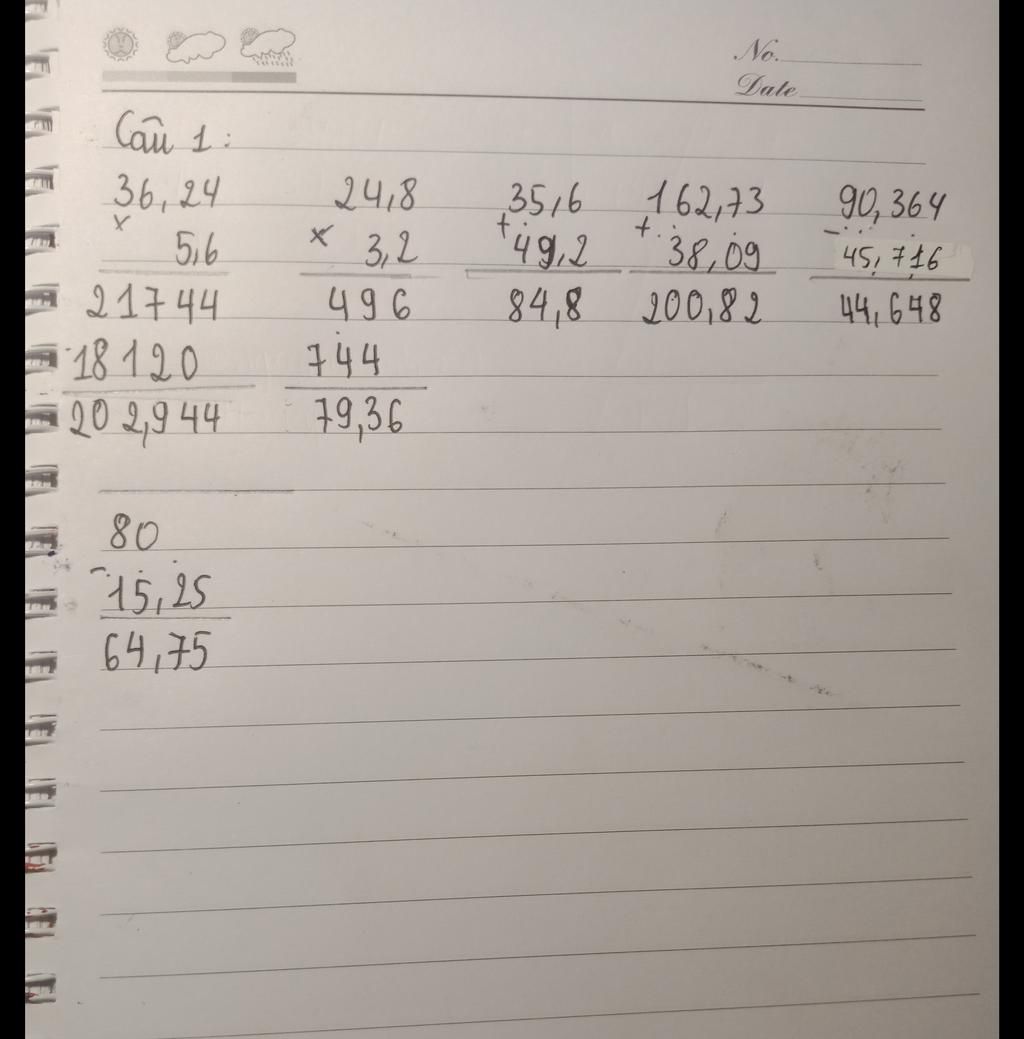 No.
Date
Câu 1:
36,24 24,8 35,6 162,73 90,364
× × + + -
5,6 3,2 49,2 38,09 45,716
21744 496 84,8 200,82 44,648
18120 744
202,944 79,36
80
-
15,25
64,75